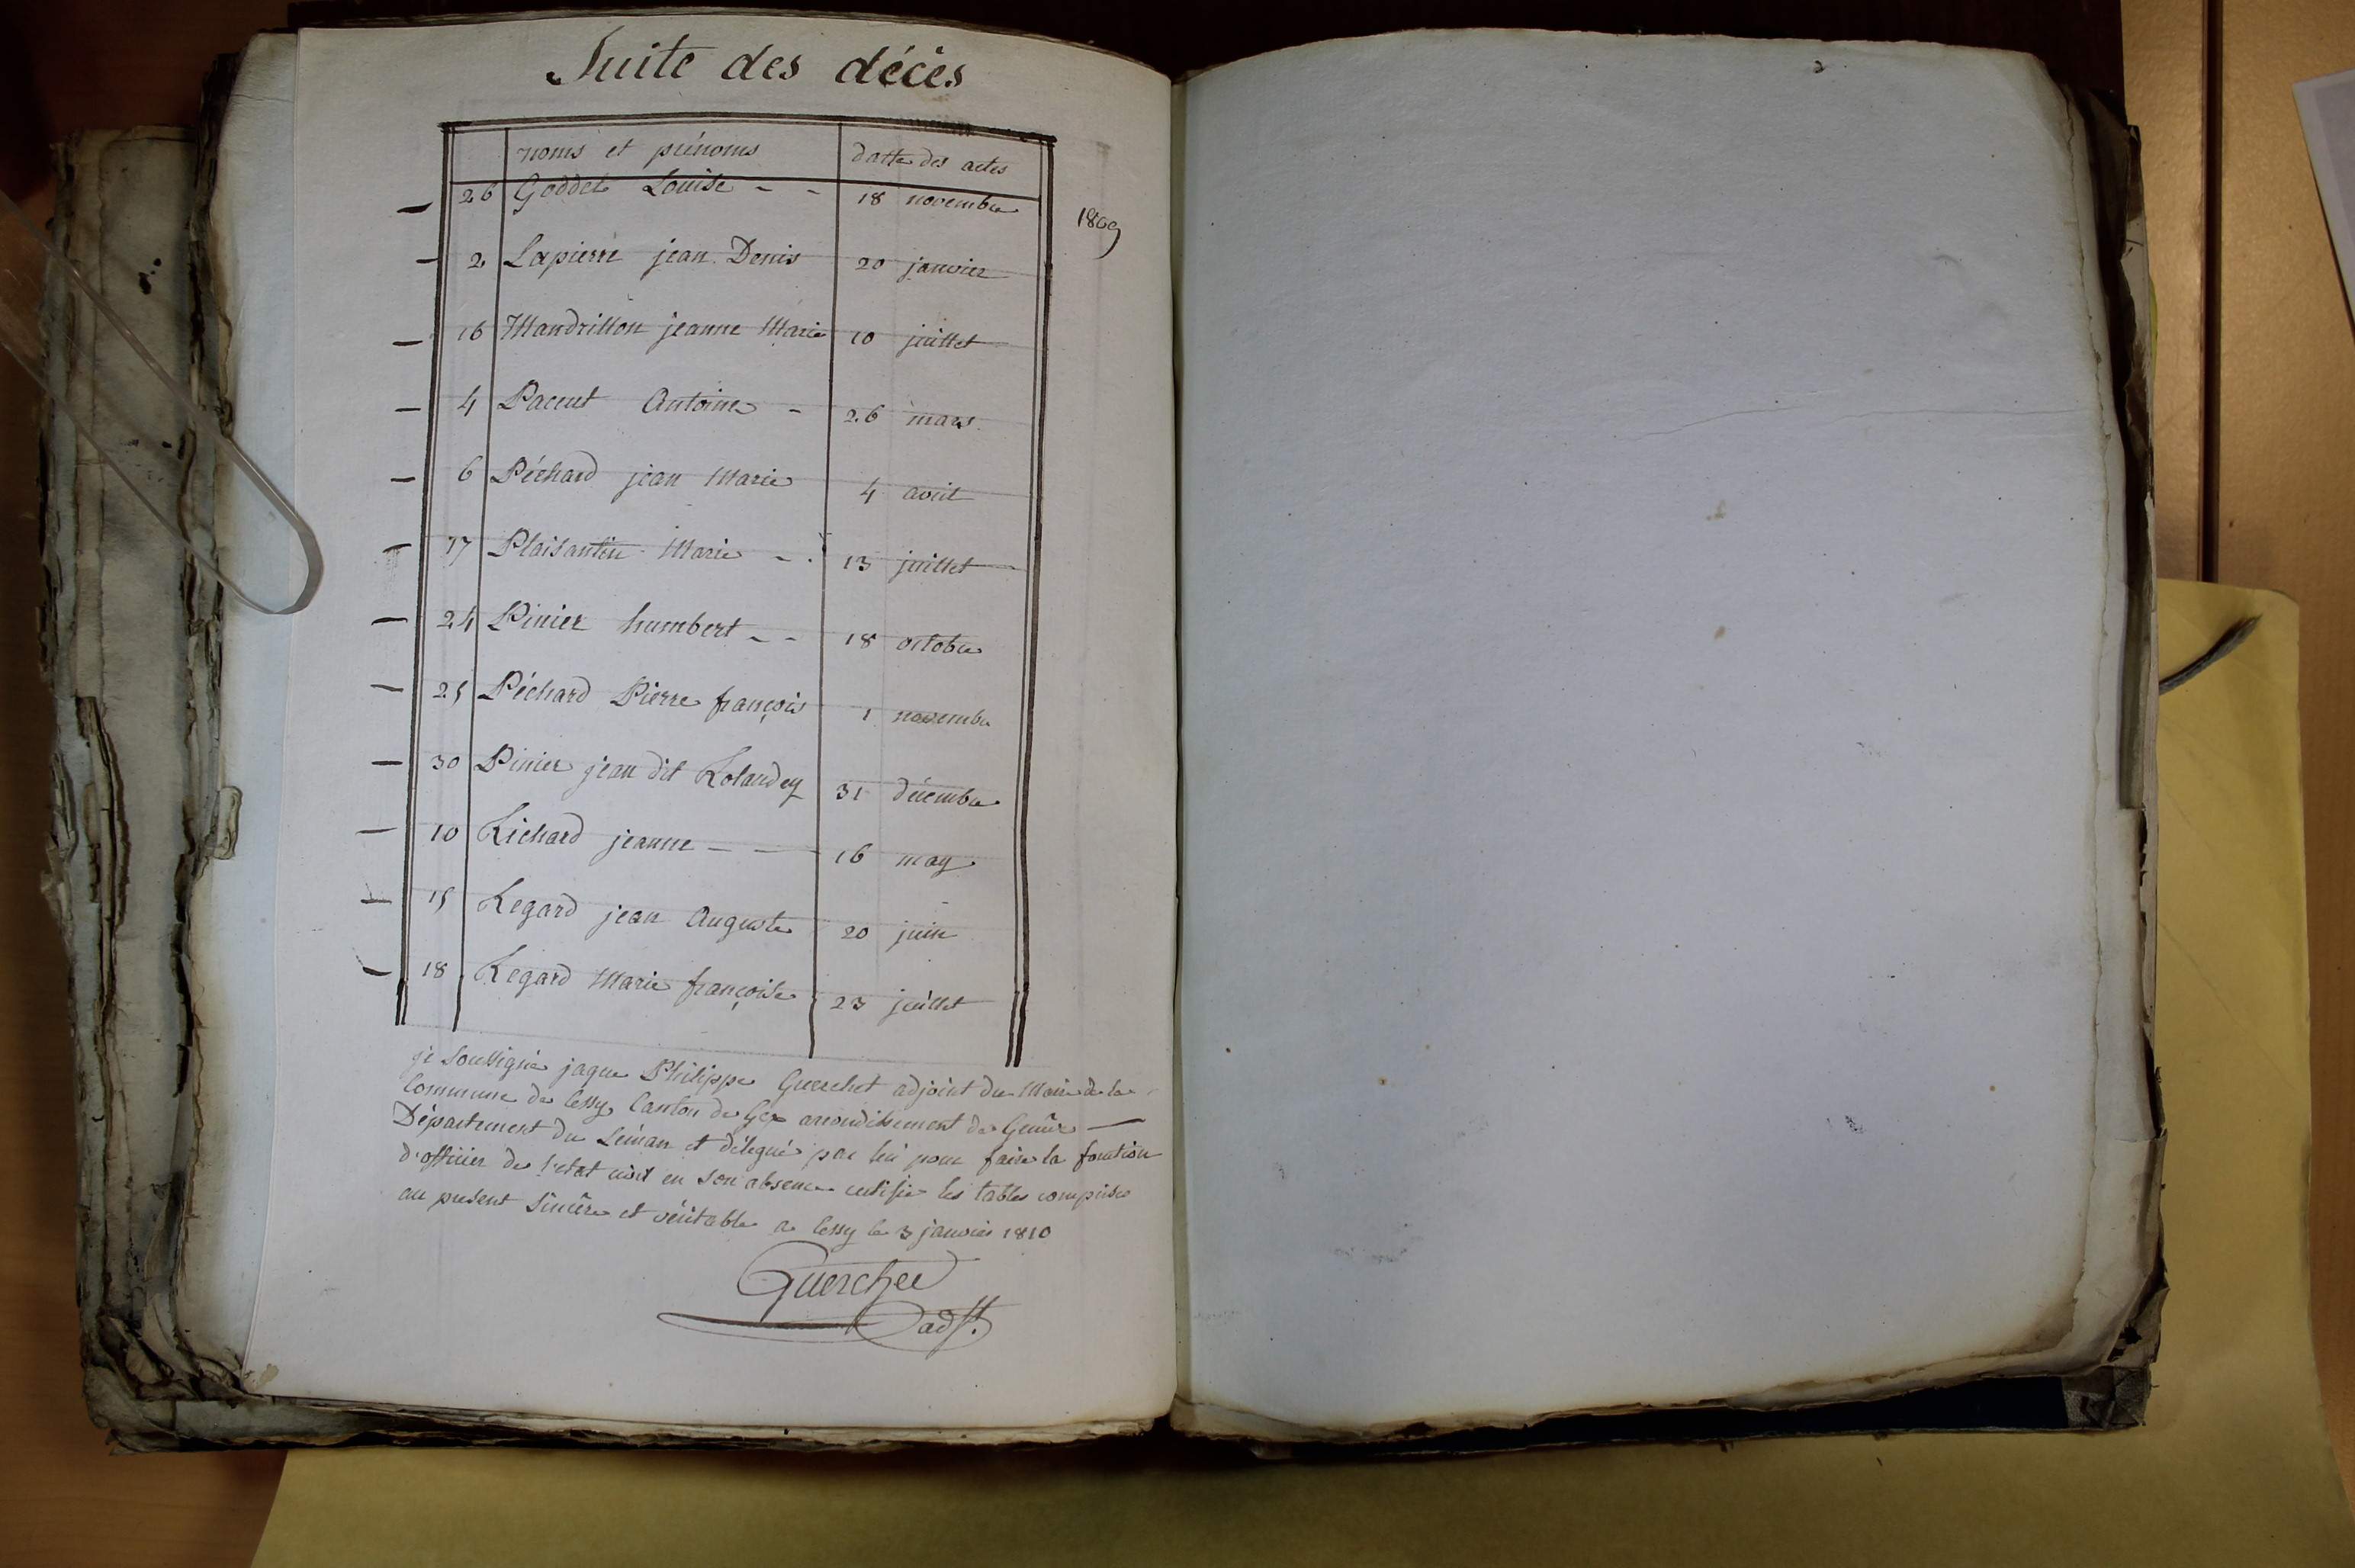 Suite des décès
noms et prénoms datte des actes
26 Goddet Louise - - 18 novembre 1809
2 Lapierre jean Denis 20 janvier
16 Mandrillon jeanne Marie 10 juillet
4 Paccut Antoine - 26 mars
6 Péchard jean Marie 4 avril
17 Plaisantin Marie - 13 juillet
24 Pinier humbert - - 18 octobre
25 Péchard Pierre françois 1 novembre
30 Pinier jean dit Rolandey 31 décembre
10 Richard jeanne - - 16 may
15 Regard jean Auguste 20 juin
18 Regard Marie françoise 23 juillet
je soussigné jaque Philippe Guerchet adjoint du Maire de la
Commune de Cessy Canton de Gex arrondissement de Genève
Département du Léman et délégué par lui pour faire la fonction
d'officier de l'etat civil en son absence certifie les tables comprises
au present sincère et véritable a Cessy le 3 janvier 1810
Guerchet
adjt.